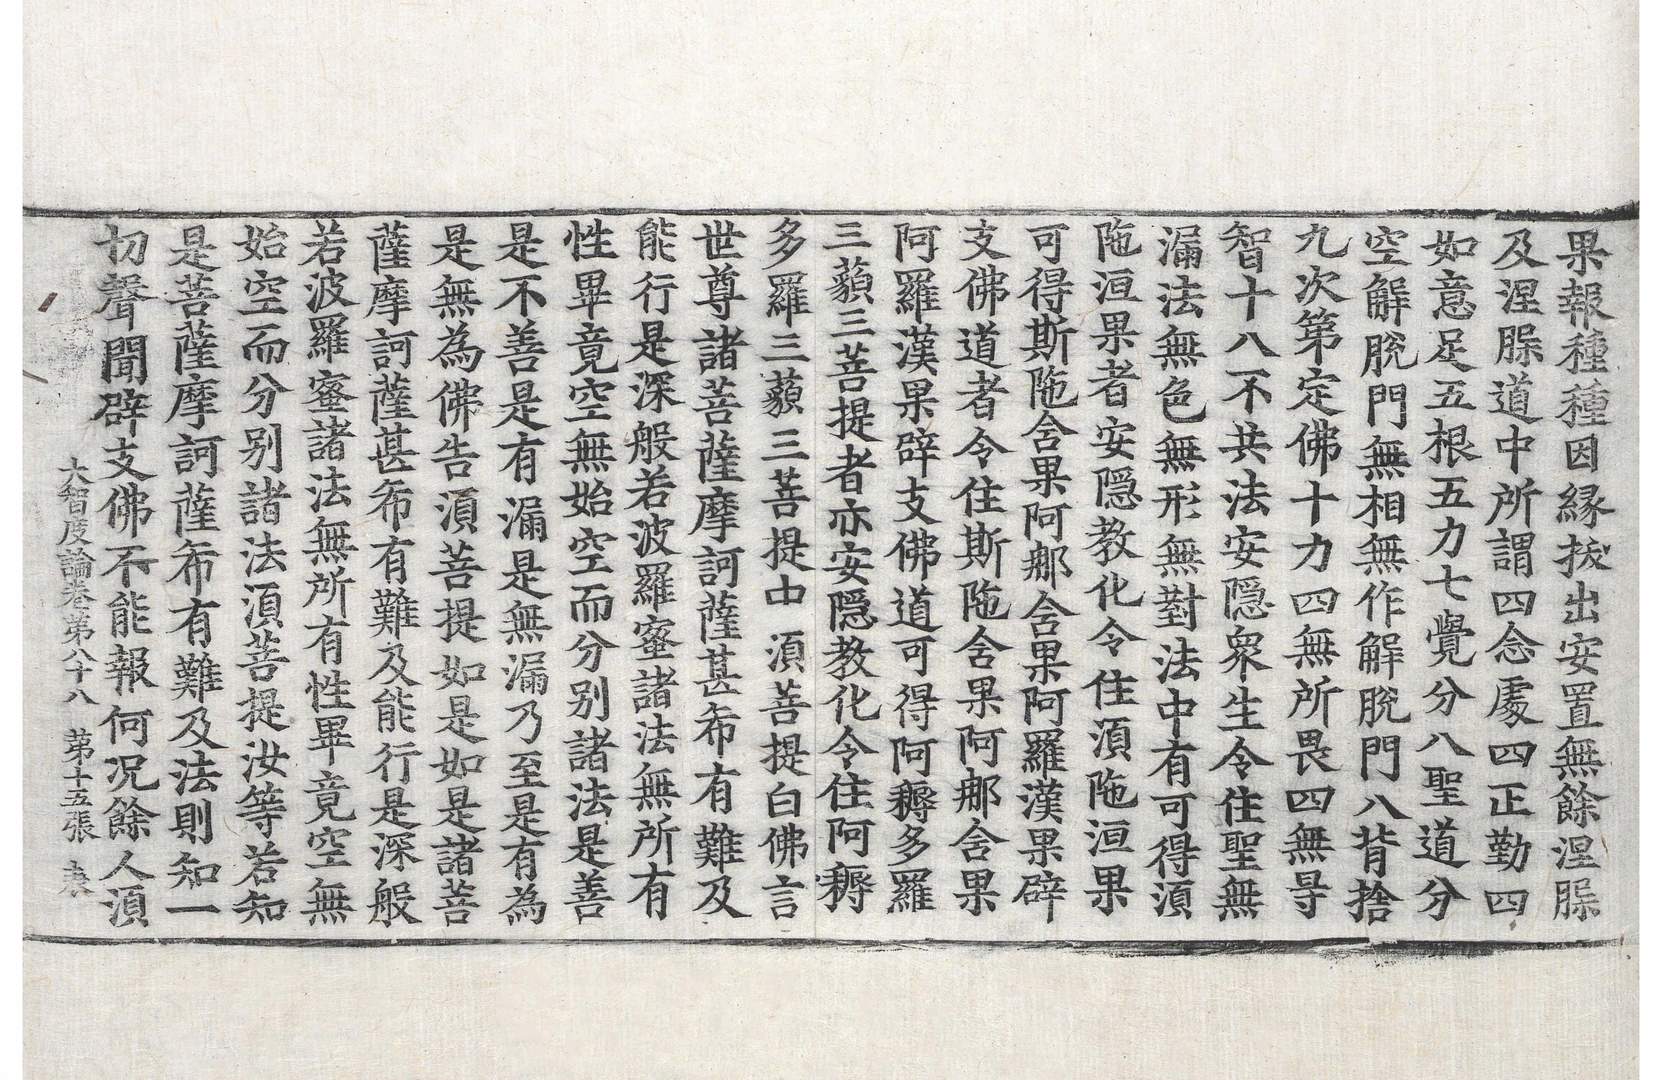 果報種種因緣拔出安置無餘涅槃
及涅槃道中所謂四念處四正勤四
如意足五根五力七覺分八聖道分
空解脫門無相無作解脫門八背捨
九次第定佛十力四無所畏四無㝵
智十八不共法安隱眾生令住聖無
漏法無色無形無對法中有可得湏
陁洹果者安隱教化令住湏陁洹果
可得斯陁含果阿那含果阿羅漢果辟
支佛道者令住斯陁含果阿那含果
阿羅漢果辟支佛道可得阿耨多羅
三藐三菩提者亦安隱教化令住阿耨
多羅三藐三菩提中 湏菩提白佛言
世尊諸菩薩摩訶薩甚希有難及
能行是深般若波羅蜜諸法無所有
性畢竟空無始空而分別諸法是善
是不善是有漏是無漏乃至是有為
是無為佛告湏菩提如是如是諸菩
薩摩訶薩甚希有難及能行是深般
若波羅蜜諸法無所有性畢竟空無
始空而分別諸法湏菩提汝等若知
是菩薩摩訶薩希有難及法則知一
切聲聞辟支佛不能報何況餘人湏
大智度論卷第八十八 第十五張